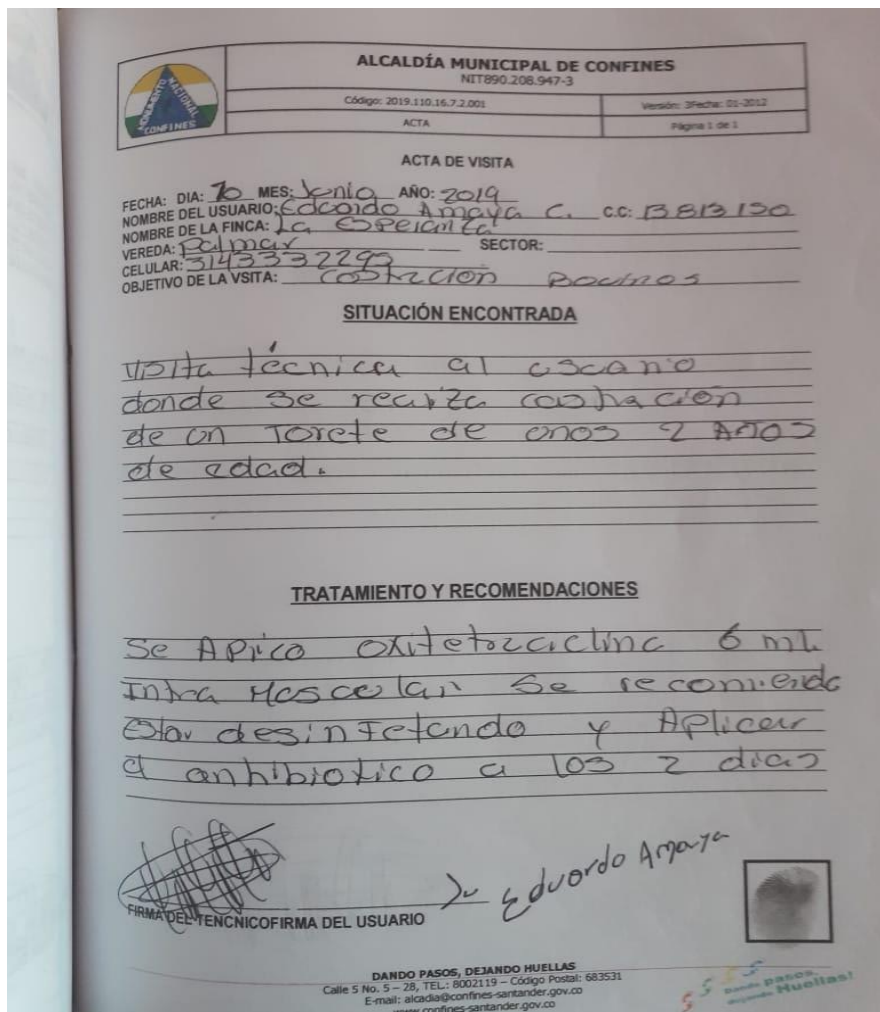 ALCALDÍA MUNICIPAL DE CONFINES
NIT890.208.947-3
MONUMENTO NACIONAL
CONFINES
Código: 2019.110.16.7.2.001
Versión: 3Fecha: 01-2012
ACTA
Página 1 de 1
ACTA DE VISITA
FECHA: DIA: 10 MES: Junio AÑO: 2019
NOMBRE DEL USUARIO: Edoardo Amaya C. C.C: 13 813 150
NOMBRE DE LA FINCA: La Esperanza
VEREDA: Palmar SECTOR:
CELULAR: 3143332293
OBJETIVO DE LA VSITA: Castracion Bovinos
SITUACIÓN ENCONTRADA
Visita técnica al
donde se realiza castracion
de un Torete de onos 2 Años
de edad.
TRATAMIENTO Y RECOMENDACIONES
Se Aplico Oxitetraciclina 6 ml.
Intra Moscular Se recomienda
Estar desinfetando y Aplicar
el antibiotico a los 2 dias
Eduardo Amaya
FIRMA DEL TENCNICOFIRMA DEL USUARIO
DANDO PASOS, DEJANDO HUELLAS
Calle 5 No. 5 – 28, TEL.: 8002119 – Código Postal: 683531
E-mail: alcadia@confines-santander.gov.co
www.confines-santander.gov.co
Dando pasos,
dejando Huellas!